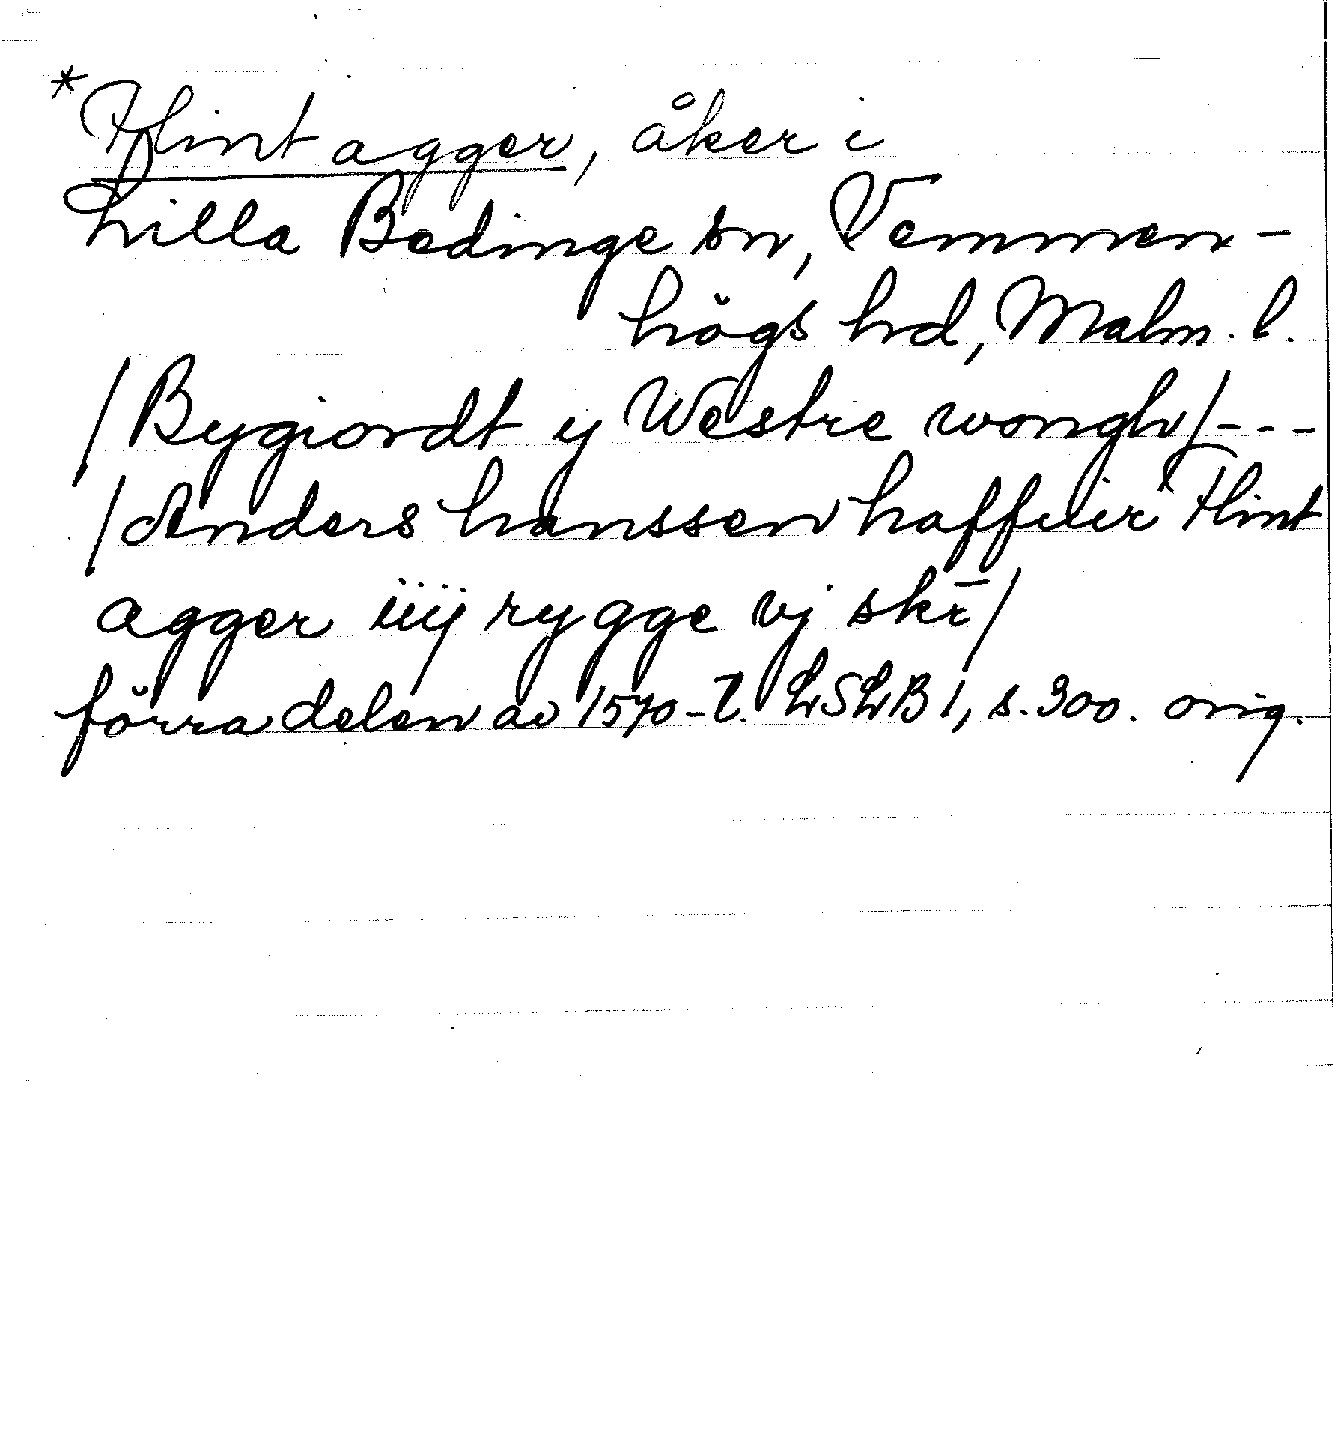 *Flint agger, åker i
Lilla Bedinge sn, Vemmen-
högs hd, Malm. l.
/Bygiordt y Westre wongh/---
/Anders hanssen haffuer Flint
agger iiij rygge vj skr̄/
förra delen av 1570-t. LSLB 1, s. 300. orig.